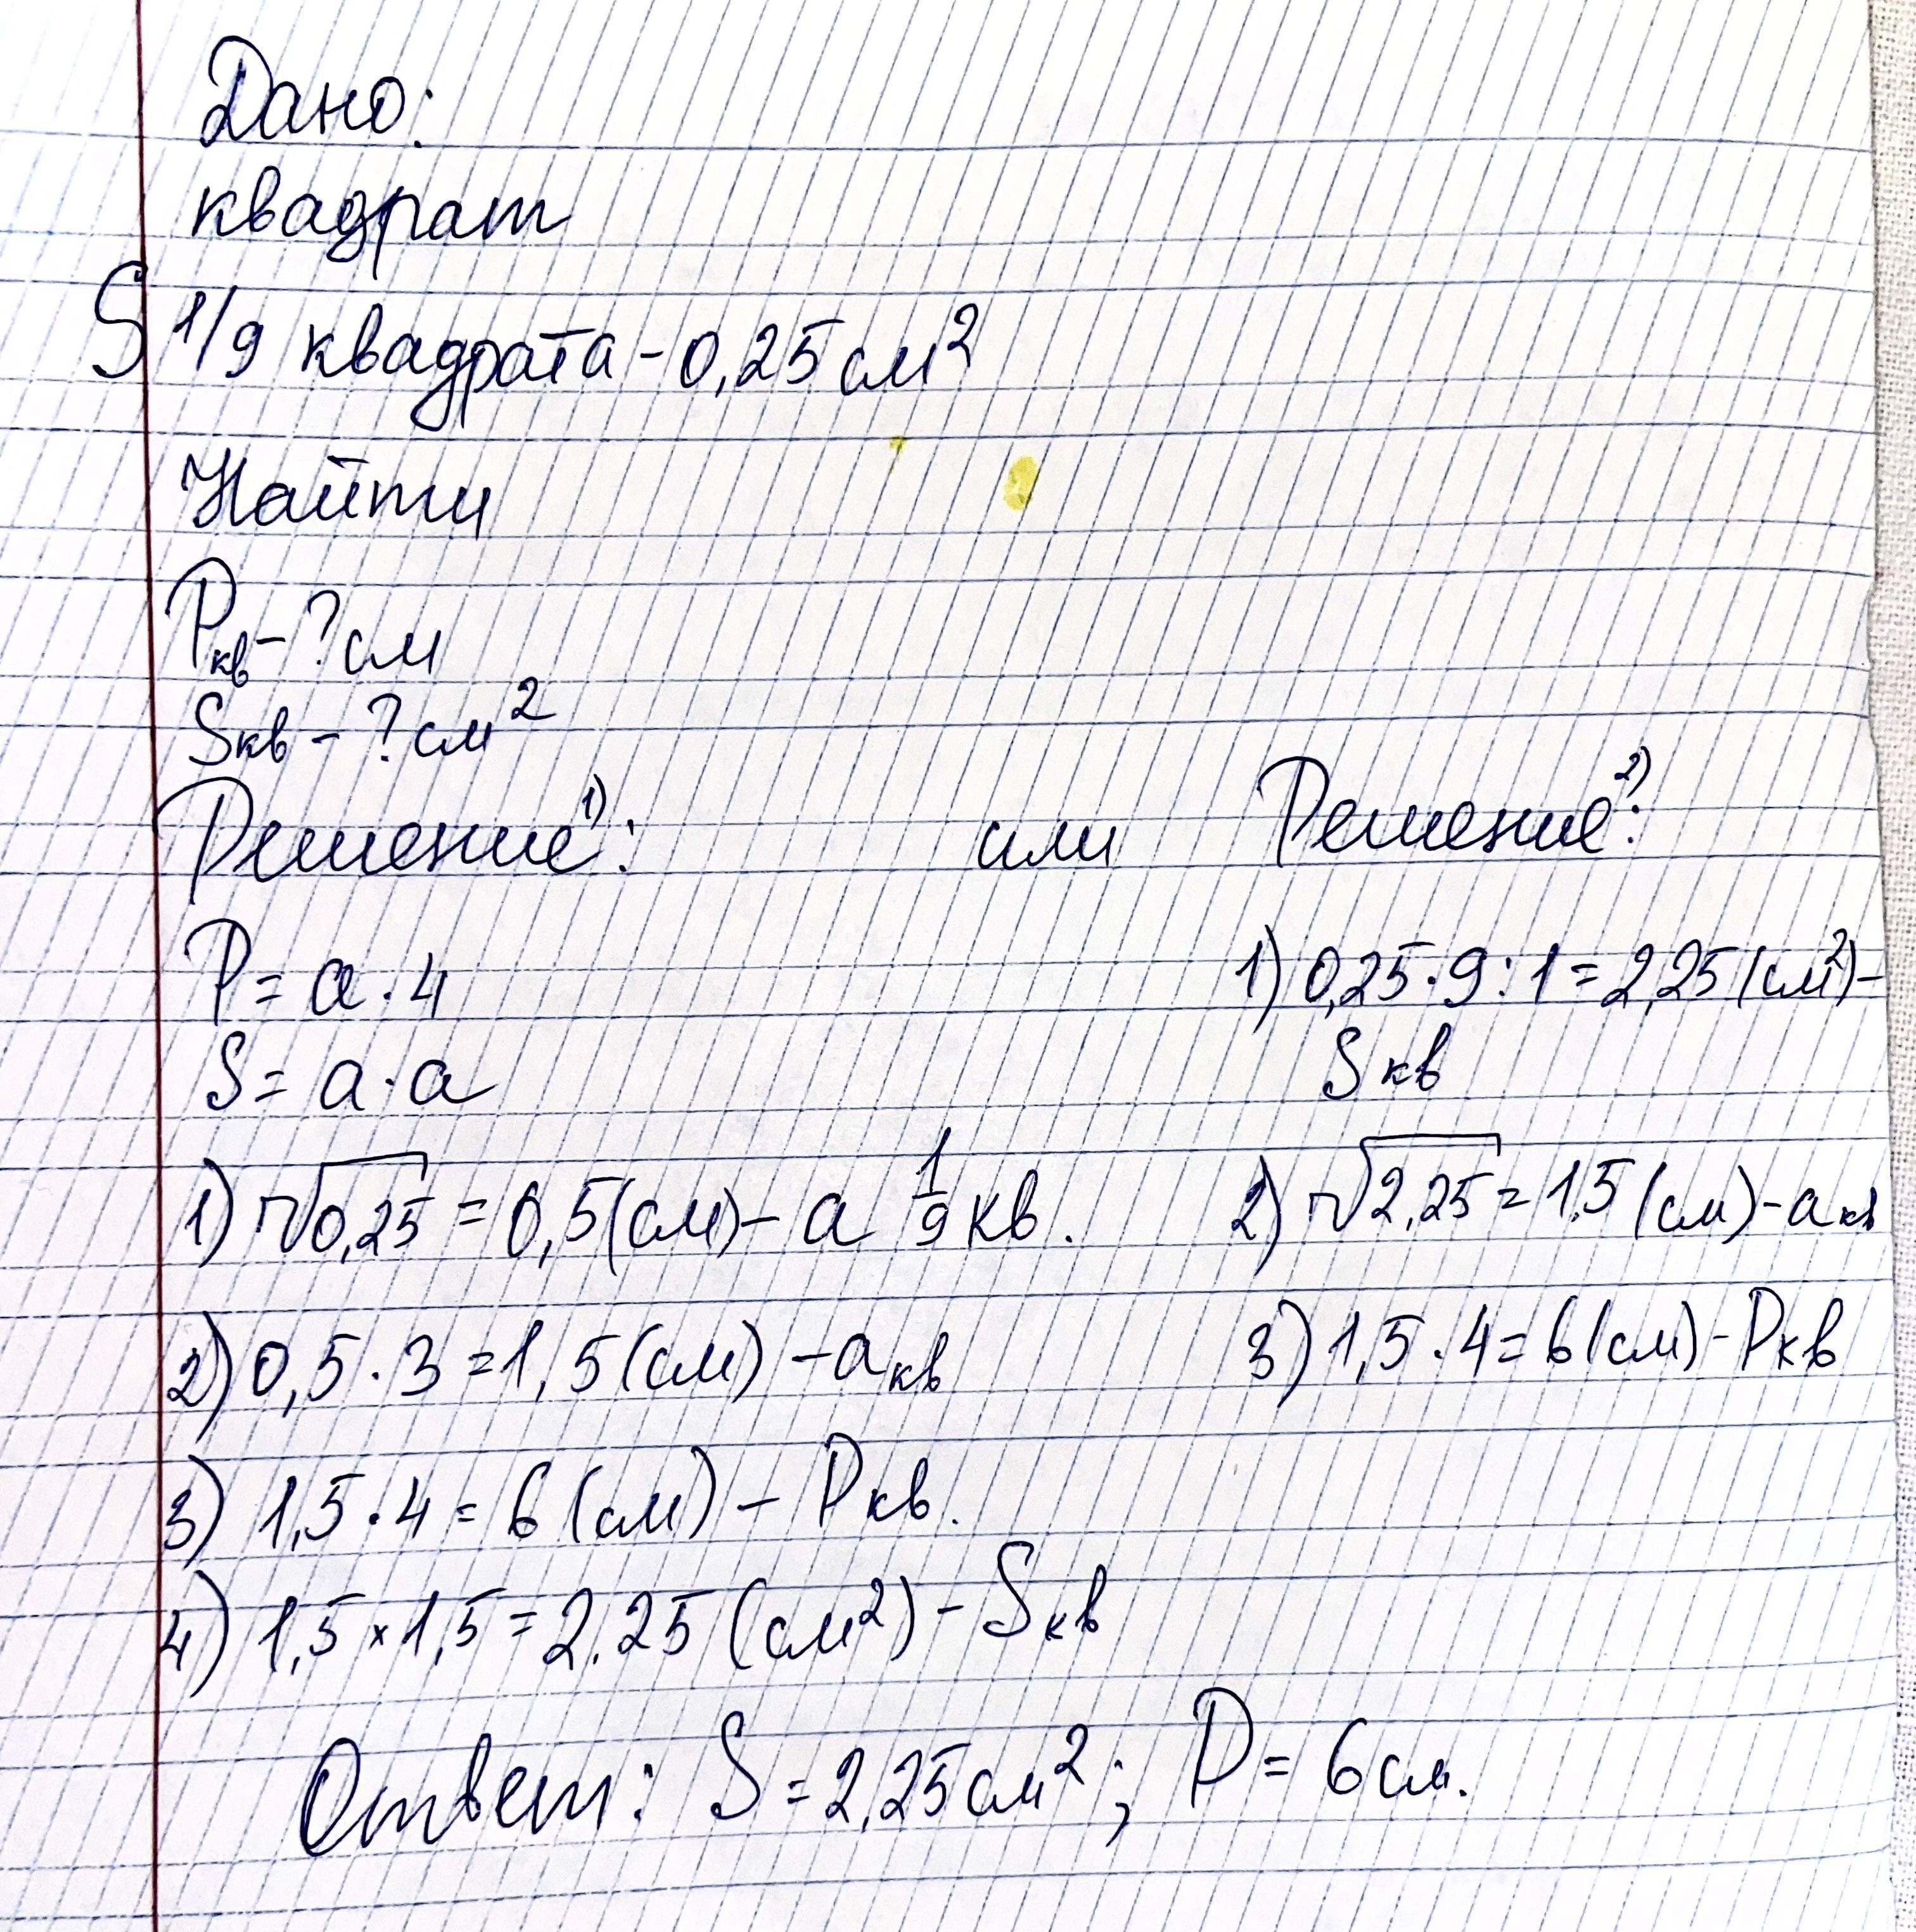 Дано:
квадрат
S 1/9 квадрата - 0,25 см²
Найти
Pкв - ? см
Sкв - ? см²
Решение¹⁾: или Решение²⁾:
P = a · 4
S = a · a
1) √0,25 = 0,5 (см) - a 1/9 кв.
2) 0,5 · 3 = 1,5 (см) - aкв
3) 1,5 · 4 = 6 (см) - Pкв.
4) 1,5 × 1,5 = 2.25 (см²) - Sкв
1) 0,25 · 9 : 1 = 2,25 (см²) -
Sкв
2) √2,25 = 1,5 (см) - aкв
3) 1,5 · 4 = 6 (см) - Pкв
Ответ: S = 2,25 см²; P = 6 см.